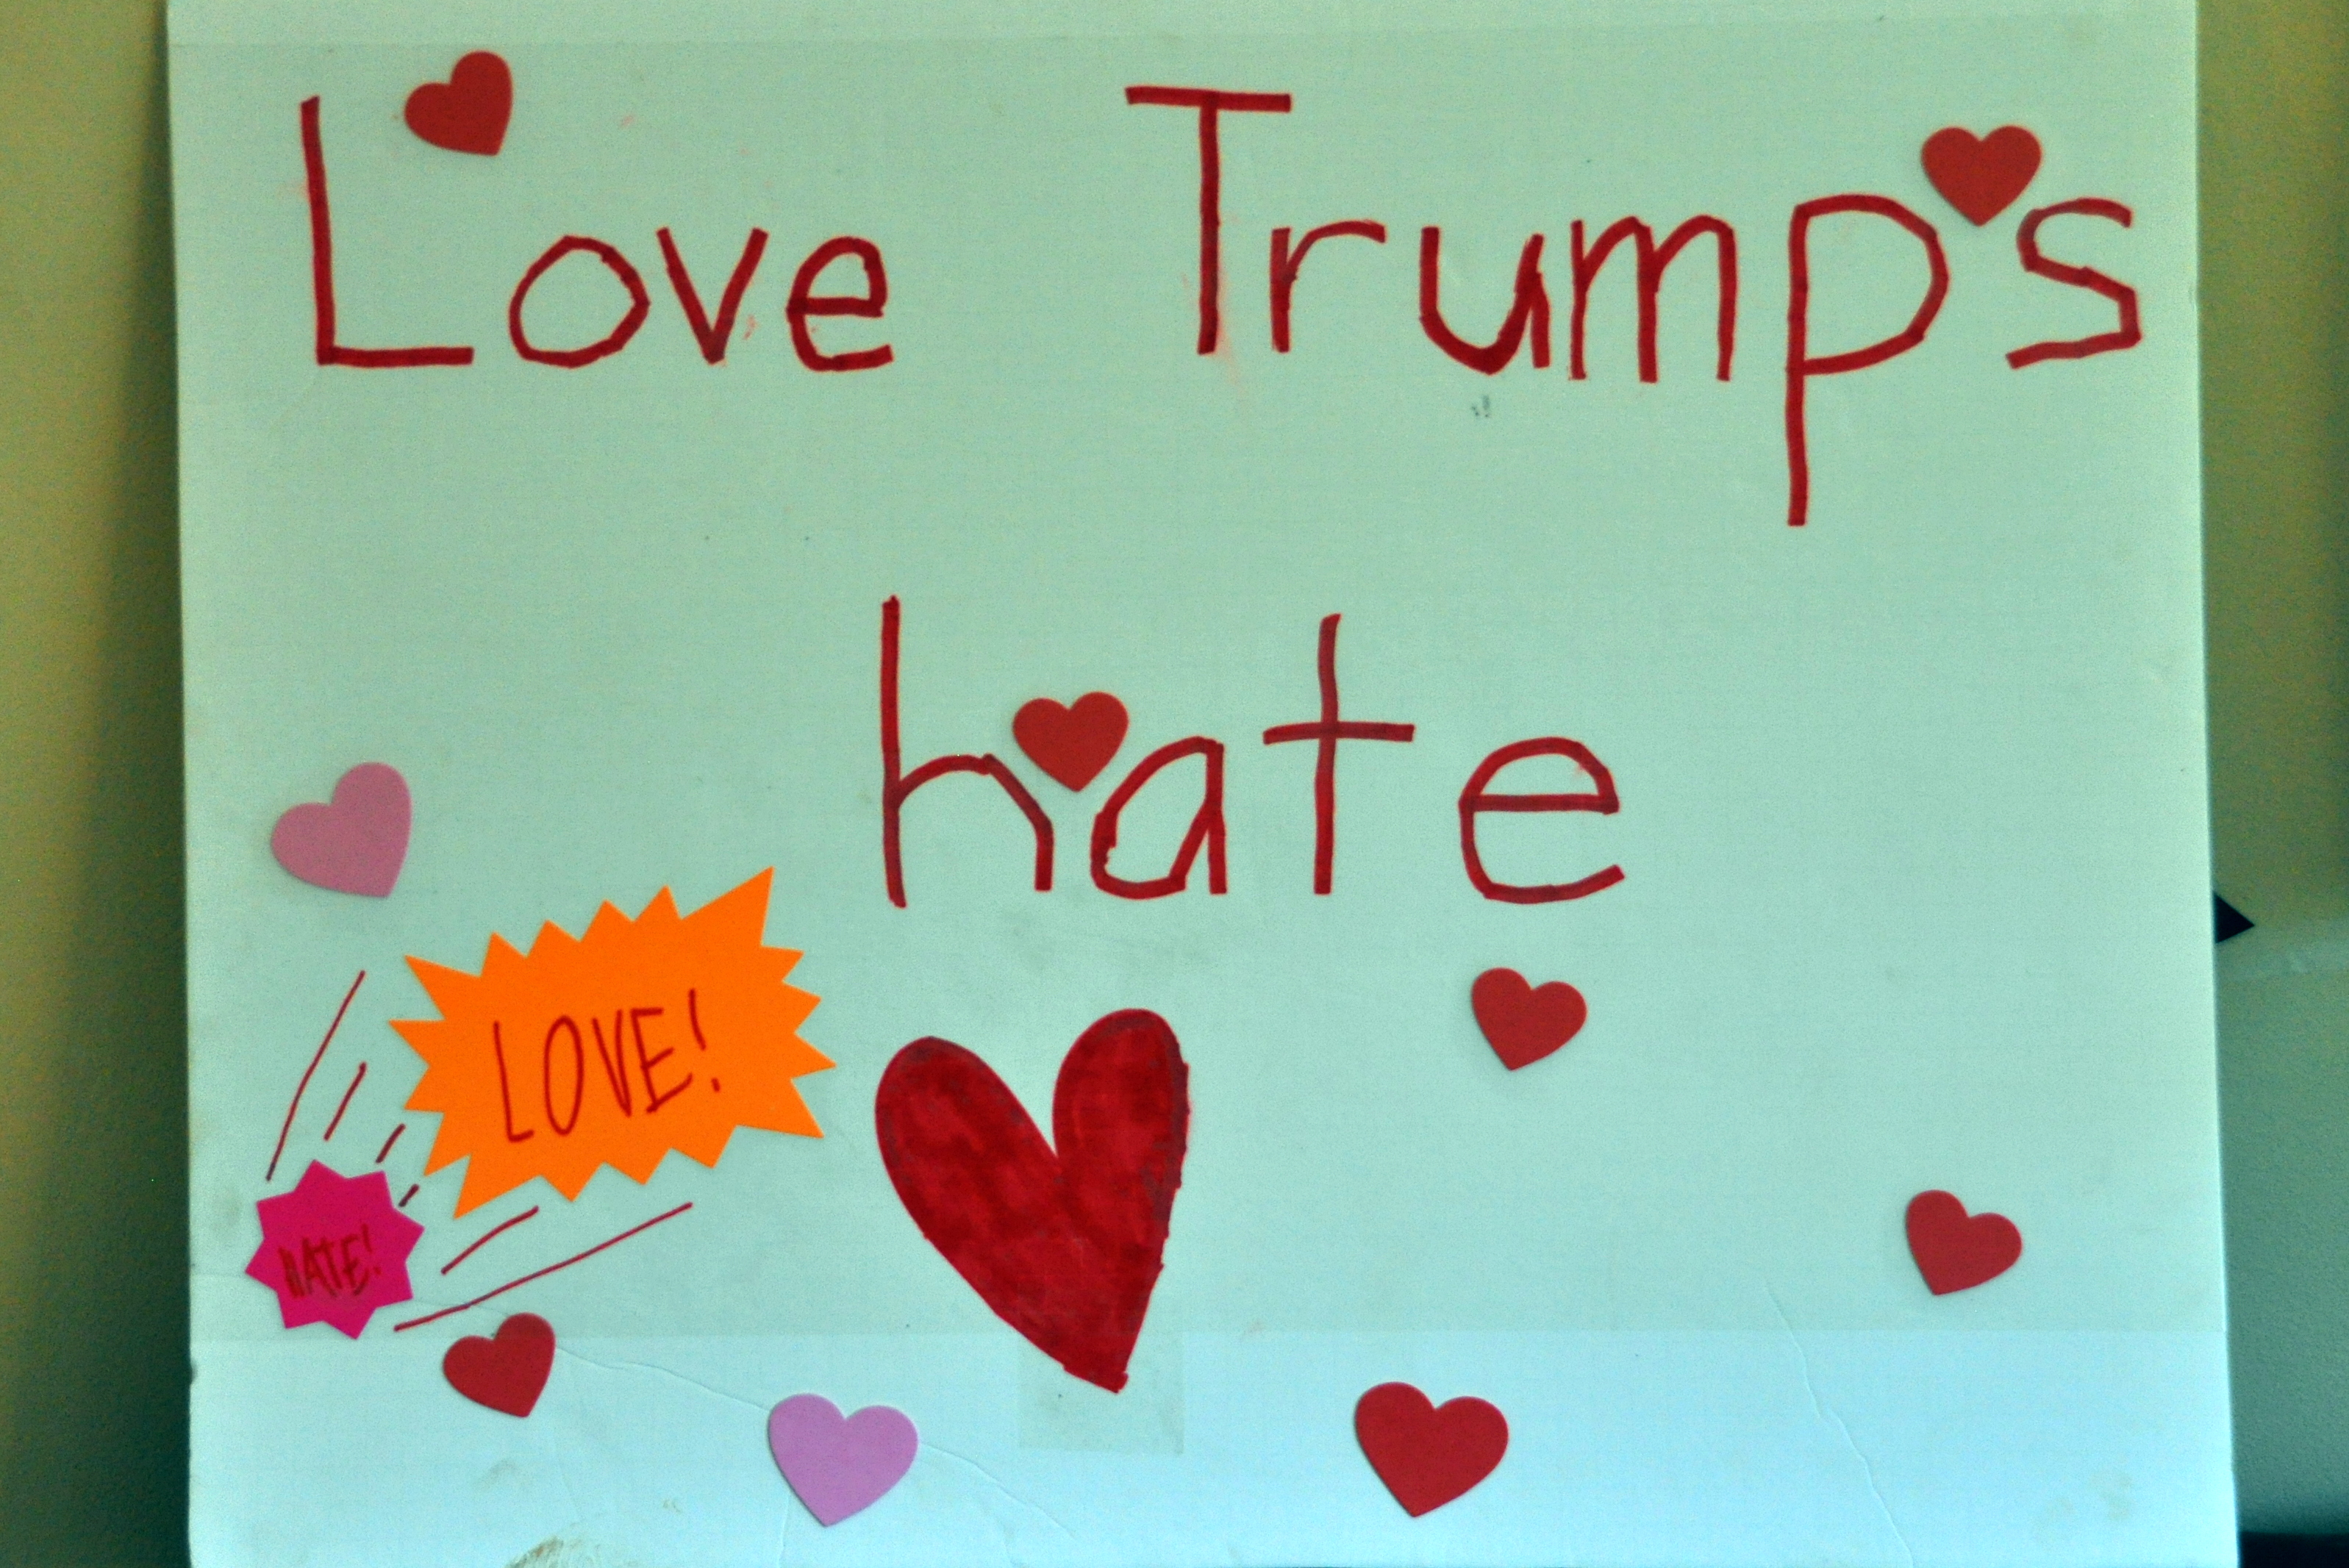 Love Trumps
hate
LOVE!
HATE!